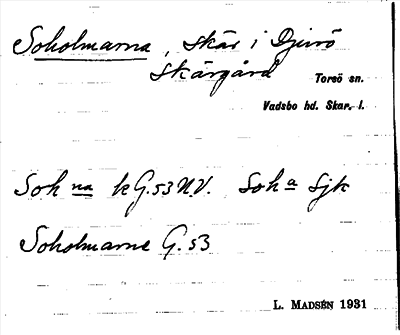 Soholmarna, skär i Djurö
skärgård
Torsö sn.
Vadsbo hd. Skar. l.
Soh na kG.53 N.V. Soh a Sjk
Soholmarne G.53
L. MADSÉN 1931